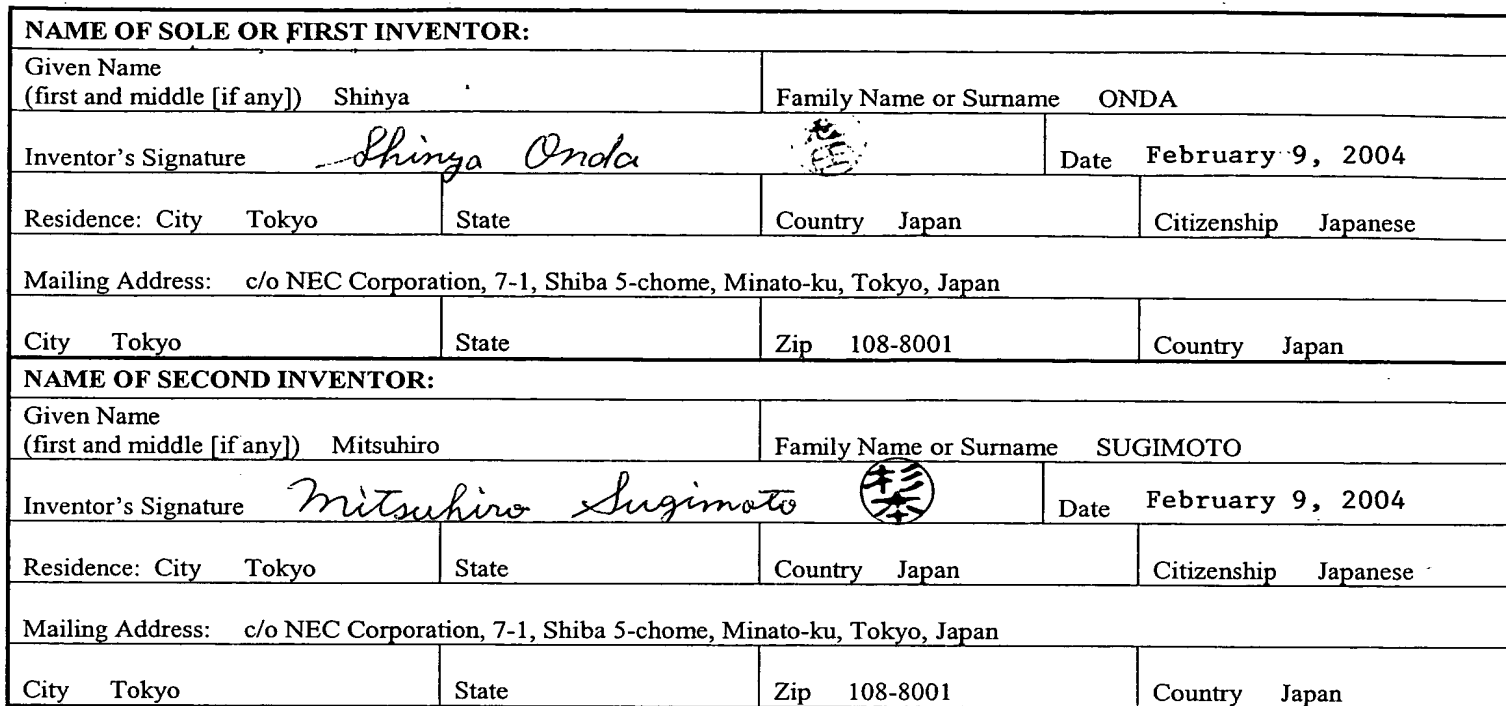 NAME OF SOLE OR FIRST INVENTOR:
Given Name
(first and middle [if any]) Shinya Family Name or Surname ONDA
Inventor's Signature Shinya Onda Date February 9, 2004
Residence: City Tokyo State Country Japan Citizenship Japanese
Mailing Address: c/o NEC Corporation, 7-1, Shiba 5-chome, Minato-ku, Tokyo, Japan
City Tokyo State Zip 108-8001 Country Japan
NAME OF SECOND INVENTOR:
Given Name
(first and middle [if any]) Mitsuhiro Family Name or Surname SUGIMOTO
Inventor's Signature Mitsuhiro Sugimoto 杉本 Date February 9, 2004
Residence: City Tokyo State Country Japan Citizenship Japanese
Mailing Address: c/o NEC Corporation, 7-1, Shiba 5-chome, Minato-ku, Tokyo, Japan
City Tokyo State Zip 108-8001 Country Japan